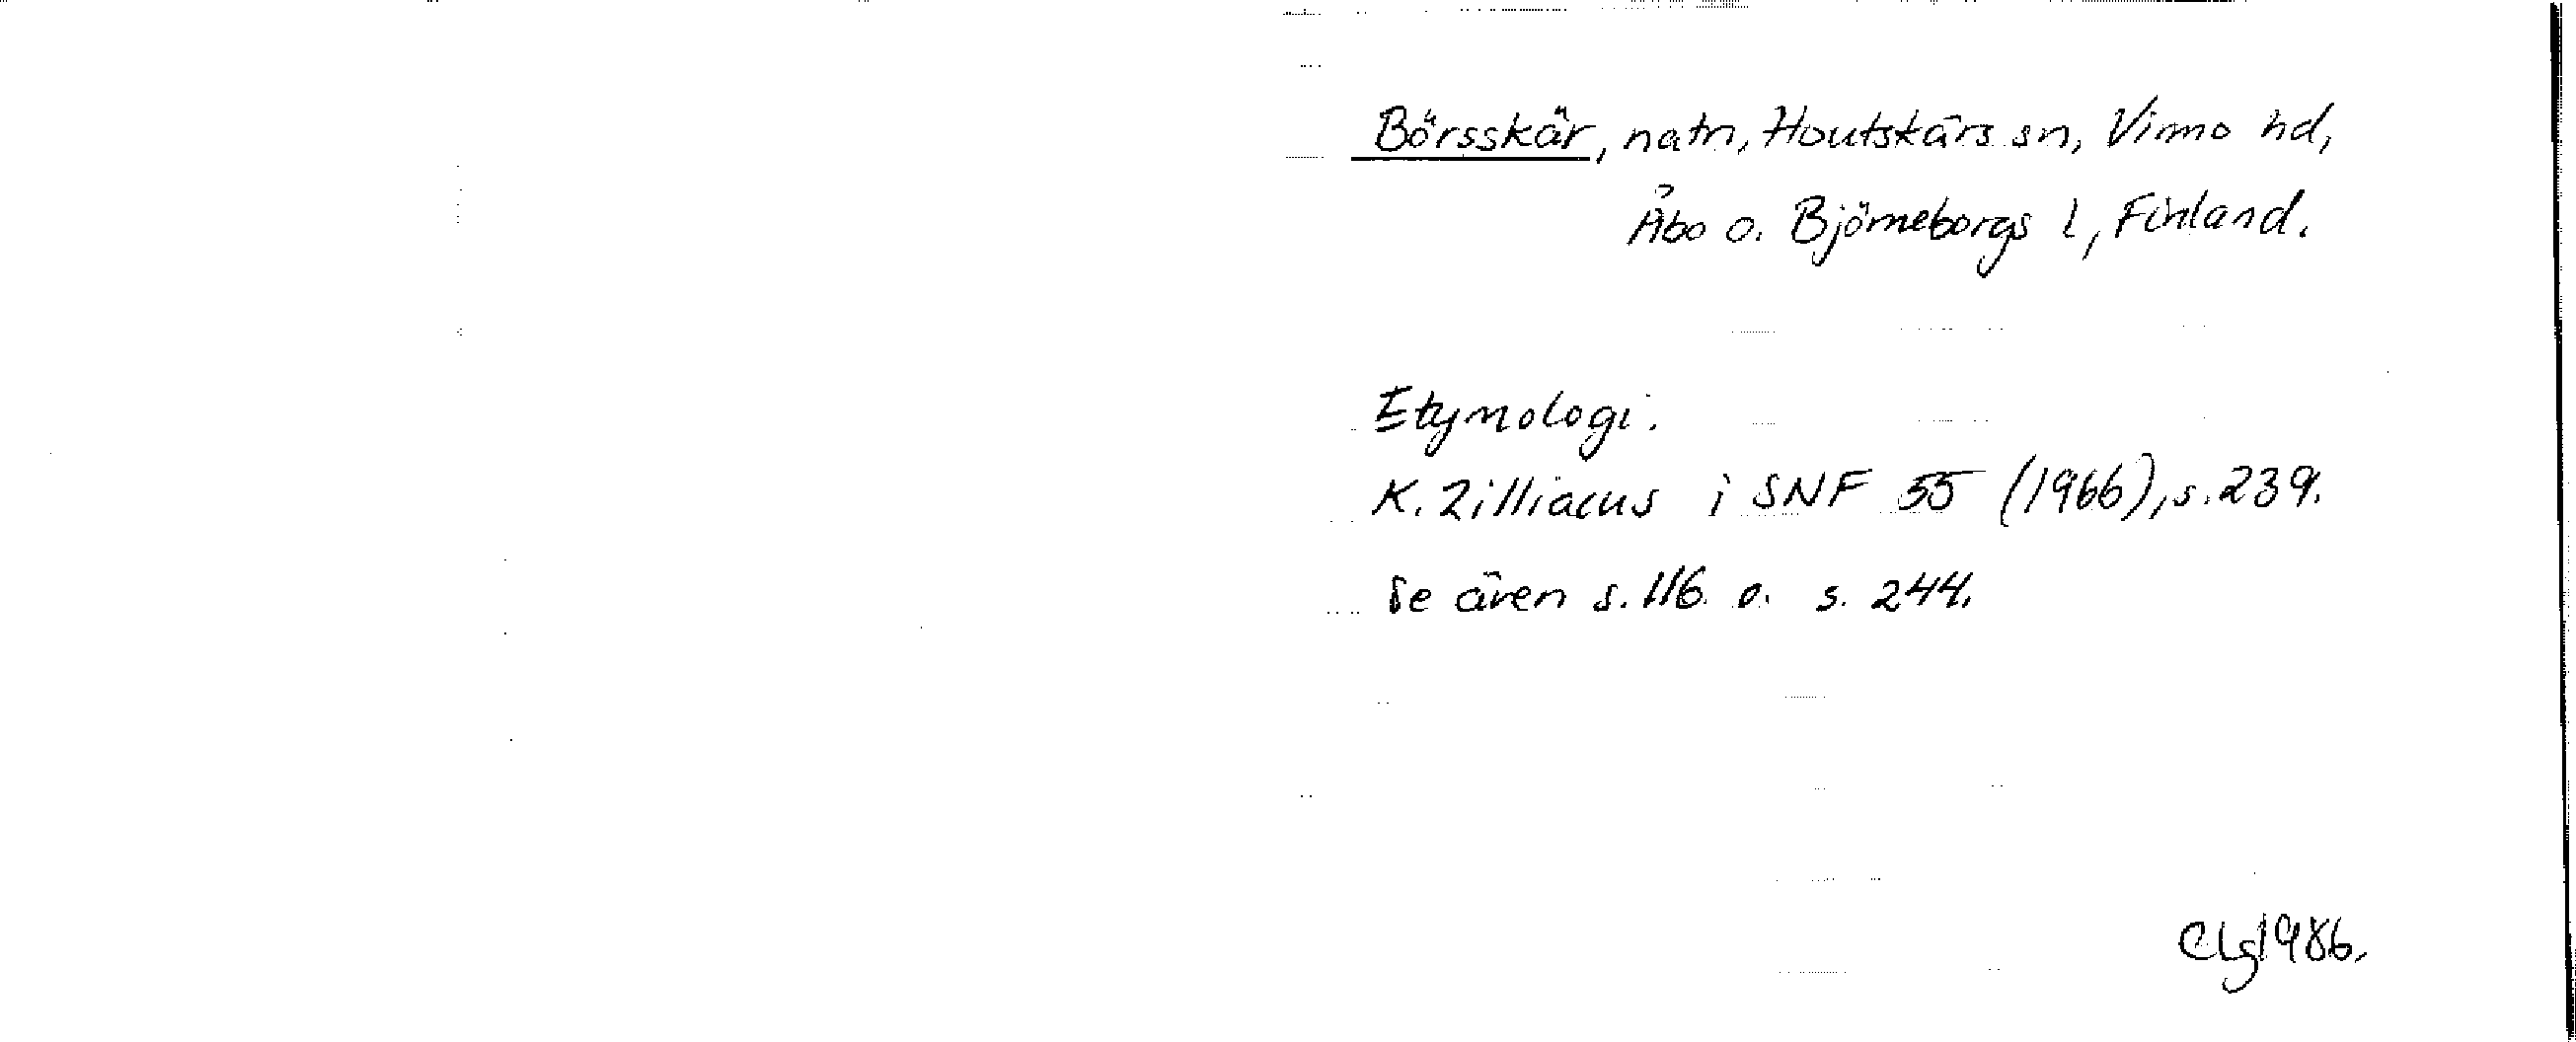 Börsskär, natn, Houtskärs sn, Virmo hd,
Åbo o. Björneborgs l, Finland.
Etymologi.
K. Zilliacus i SNF 55 (1966), s. 239.
Se även s. 116 o. s. 244.
CLg 1986.